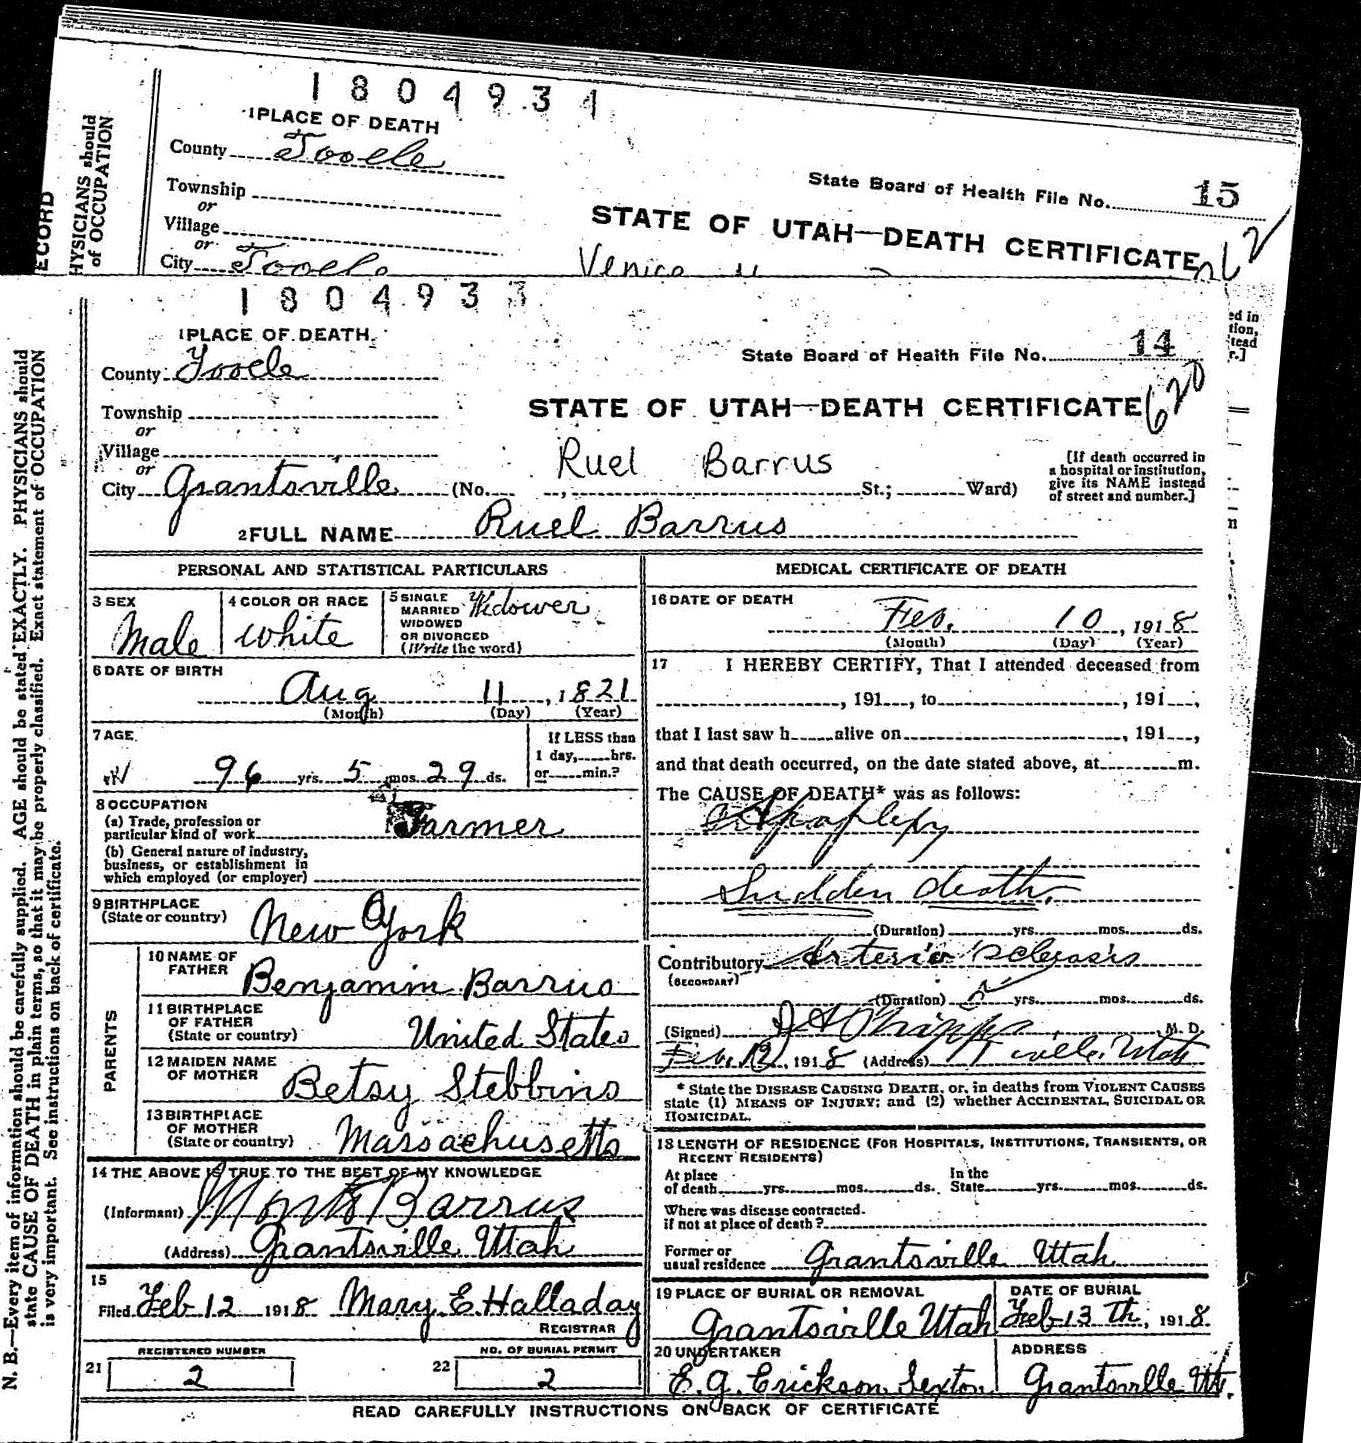 1804934
1 PLACE OF DEATH
County Tooele
State Board of Health File No. 15
Township
or
STATE OF UTAH—DEATH CERTIFICATE
Village
or
City Tooele
Venice
ECORD
HYSICIANS should
of OCCUPATION
1804933
1 PLACE OF DEATH.
State Board of Health File No. 14
County Tooele
Township
STATE OF UTAH—DEATH CERTIFICATE 620
or
Village
Ruel Barrus
or
City Grantsville (No. , St.; Ward)
[If death occurred in
a hospital or institution,
give its NAME instead
of street and number.]
2 FULL NAME Ruel Barrus
PERSONAL AND STATISTICAL PARTICULARS
3 SEX
Male
4 COLOR OR RACE
White
5 SINGLE
MARRIED
WIDOWED
OR DIVORCED
(Write the word)
Widower
6 DATE OF BIRTH
Aug 11, 1821
(Month) (Day) (Year)
7 AGE
96 yrs. 5 mos. 29 ds.
If LESS than
1 day, hrs.
or min.?
8 OCCUPATION
(a) Trade, profession or
particular kind of work Farmer
(b) General nature of industry,
business, or establishment in
which employed (or employer)
9 BIRTHPLACE
(State or country) New York
PARENTS
10 NAME OF
FATHER Benjamin Barrus
11 BIRTHPLACE
OF FATHER
(State or country) United States
12 MAIDEN NAME
OF MOTHER Betsy Stebbins
13 BIRTHPLACE
OF MOTHER
(State or country) Massachusetts
14 THE ABOVE IS TRUE TO THE BEST OF MY KNOWLEDGE
(Informant) Barrus
(Address) Grantsville Utah
15
Filed Feb 12 1918 Mary E Halladay
REGISTRAR
21 REGISTERED NUMBER
2
22 NO. OF BURIAL PERMIT
2
MEDICAL CERTIFICATE OF DEATH
16 DATE OF DEATH
Feb. 10, 1918
(Month) (Day) (Year)
17 I HEREBY CERTIFY, That I attended deceased from
, 191 , to , 191 ,
that I last saw h alive on , 191 ,
and that death occurred, on the date stated above, at m.
The CAUSE OF DEATH* was as follows:
Apoplexy
Sudden death.
(Duration) yrs. mos. ds.
Contributory Arterio Sclerosis
(SECONDARY)
(Duration) yrs. mos. ds.
(Signed) , M. D.
Feb. 12, 1918 (Address) ville, Utah
* State the DISEASE CAUSING DEATH, or, in deaths from VIOLENT CAUSES
state (1) MEANS OF INJURY; and (2) whether ACCIDENTAL, SUICIDAL OR
HOMICIDAL.
18 LENGTH OF RESIDENCE (FOR HOSPITALS, INSTITUTIONS, TRANSIENTS, OR
RECENT RESIDENTS)
At place
of death yrs. mos. ds.
In the
State yrs. mos. ds.
Where was disease contracted
if not at place of death?
Former or
usual residence Grantsville Utah
19 PLACE OF BURIAL OR REMOVAL
Grantsville Utah
DATE OF BURIAL
Feb 13 th, 1918
20 UNDERTAKER
E. G. Erickson Sexton
ADDRESS
Grantsville Ut.
READ CAREFULLY INSTRUCTIONS ON BACK OF CERTIFICATE
N. B.—Every item of information should be carefully supplied. AGE should be stated EXACTLY. PHYSICIANS should
state CAUSE OF DEATH in plain terms, so that it may be properly classified. Exact statement of OCCUPATION
is very important. See instructions on back of certificate.
ed in
tion,
tead
r.]